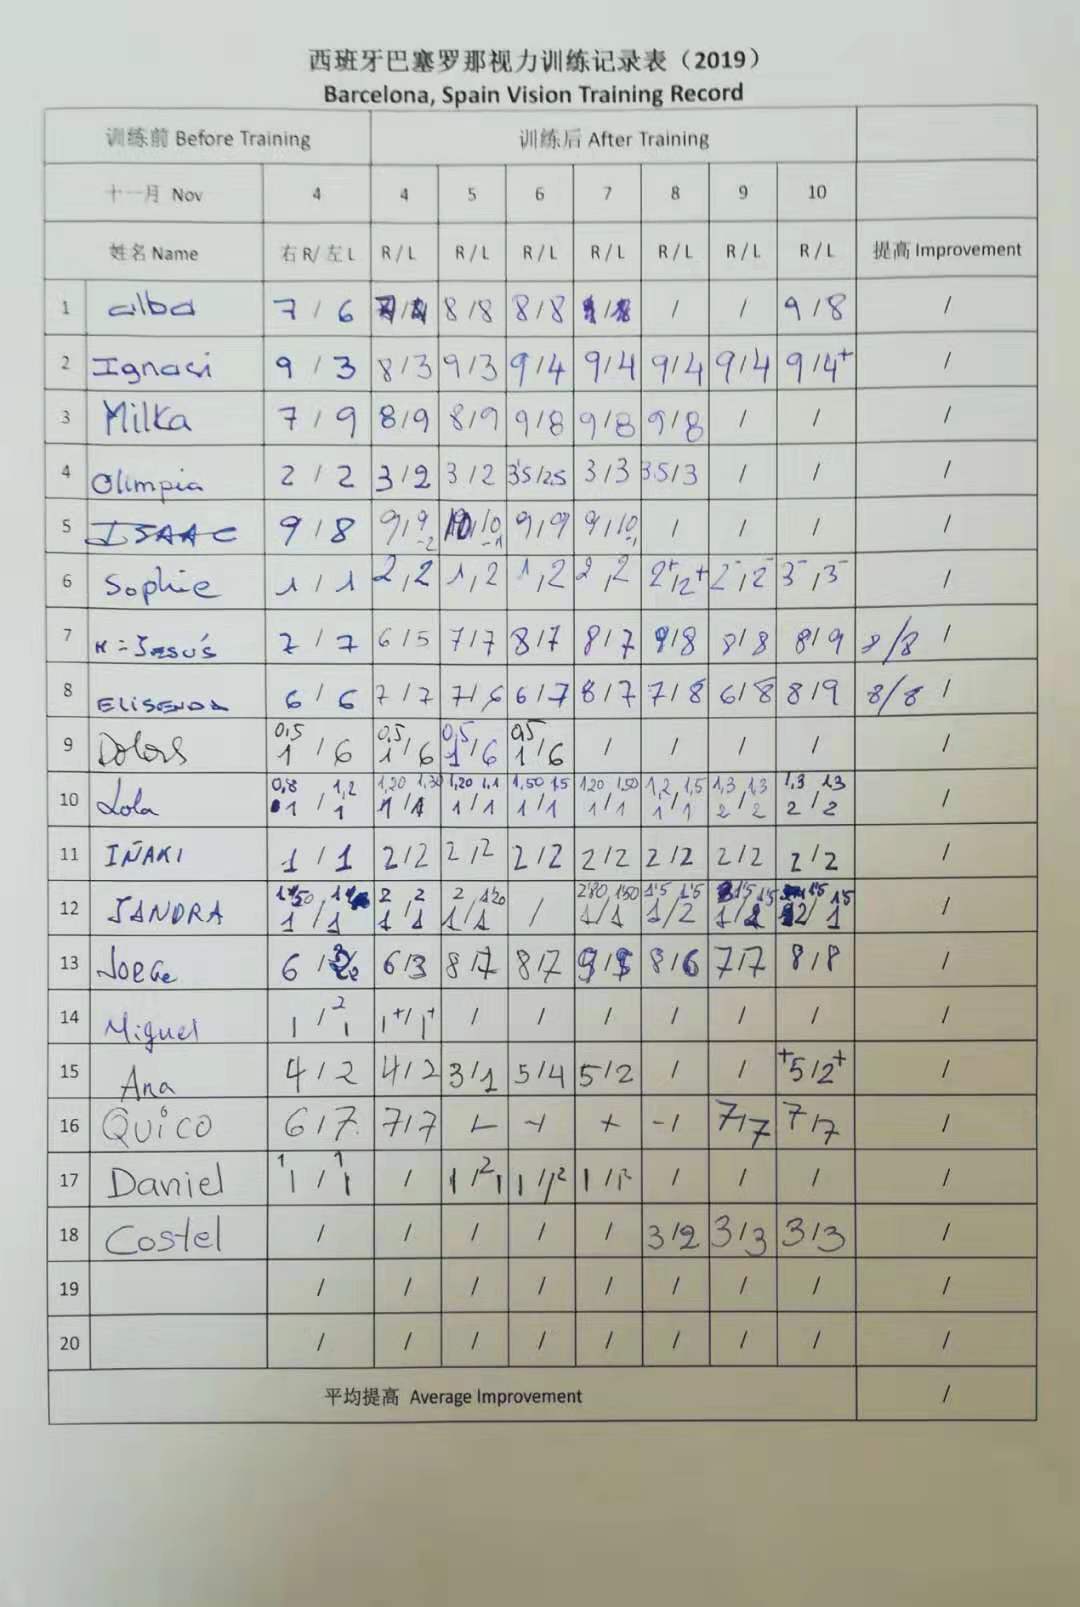 西班牙巴塞罗那视力训练记录表（2019）
Barcelona, Spain Vision Training Record
训练前 Before Training 训练后 After Training
十一月 Nov 4 4 5 6 7 8 9 10
姓名 Name 右 R/ 左 L R / L R / L R / L R / L R / L R / L R / L 提高 Improvement
1 alba 7 / 6 8/8 8/8 / / 9/8 /
2 Ignasi 9 / 3 8/3 9/3 9/4 9/4 9/4 9/4 9/4+ /
3 Milka 7 / 9 8/9 8/9 9/8 9/8 9/8 / / /
4 Olimpia 2 / 2 3/2 3/2 3'5/2.5 3/3 3.5/3 / / /
5 ISAAC 9 / 8 9/9 -2 10/10 -1 9/9 9/10 -1 / / / /
6 Sophie 1 / 1 2/2 1/2 1/2 2/2 2+/2+ 2-/2- 3-/3- /
7 Jesús 7 / 7 6/5 7/7 8/7 8/7 9/8 8/8 8/9 8/8 /
8 ELISENDA 6 / 6 7/7 7/6 6/7 8/7 7/8 6/8 8/9 8/8 /
9 Dolors 0,5 1 / 6 0,5 1/6 0,5 1/6 0,5 1/6 / / / / /
10 Lola 0,8 1,2 1 / 1 1,20 1,30 1/1 1,20 1,1 1/1 1,50 1,5 1/1 1,20 1,50 1/1 1,2 1,5 1/1 1,3 1,3 2/2 1,3 1,3 2/2 /
11 IÑAKI 1 / 1 2/2 2/2 2/2 2/2 2/2 2/2 2/2 /
12 SANDRA 1 / 1 2 2 1/1 2 1'20 1/1 / 2'80 1'50 1/1 1'5 1'5 1/2 1'5 1'5 1'5 1'5 /
13 JORGE 6 / 6/3 8/7 8/7 8/6 7/7 8/8 /
14 Miguel 1 / 2 1 1+/1+ / / / / / / /
15 Ana 4/2 4/2 3/1 5/4 5/2 / / +5/2+ /
16 QUICO 6/7 7/7 7/7 7/7 /
17 Daniel 1 1 1 / 1 / 1/2 1 1/1 2 1/1 2 / / / /
18 Costel / / / / / 3/2 3/3 3/3 /
19 / / / / / / / / /
20 / / / / / / / / /
平均提高 Average Improvement /